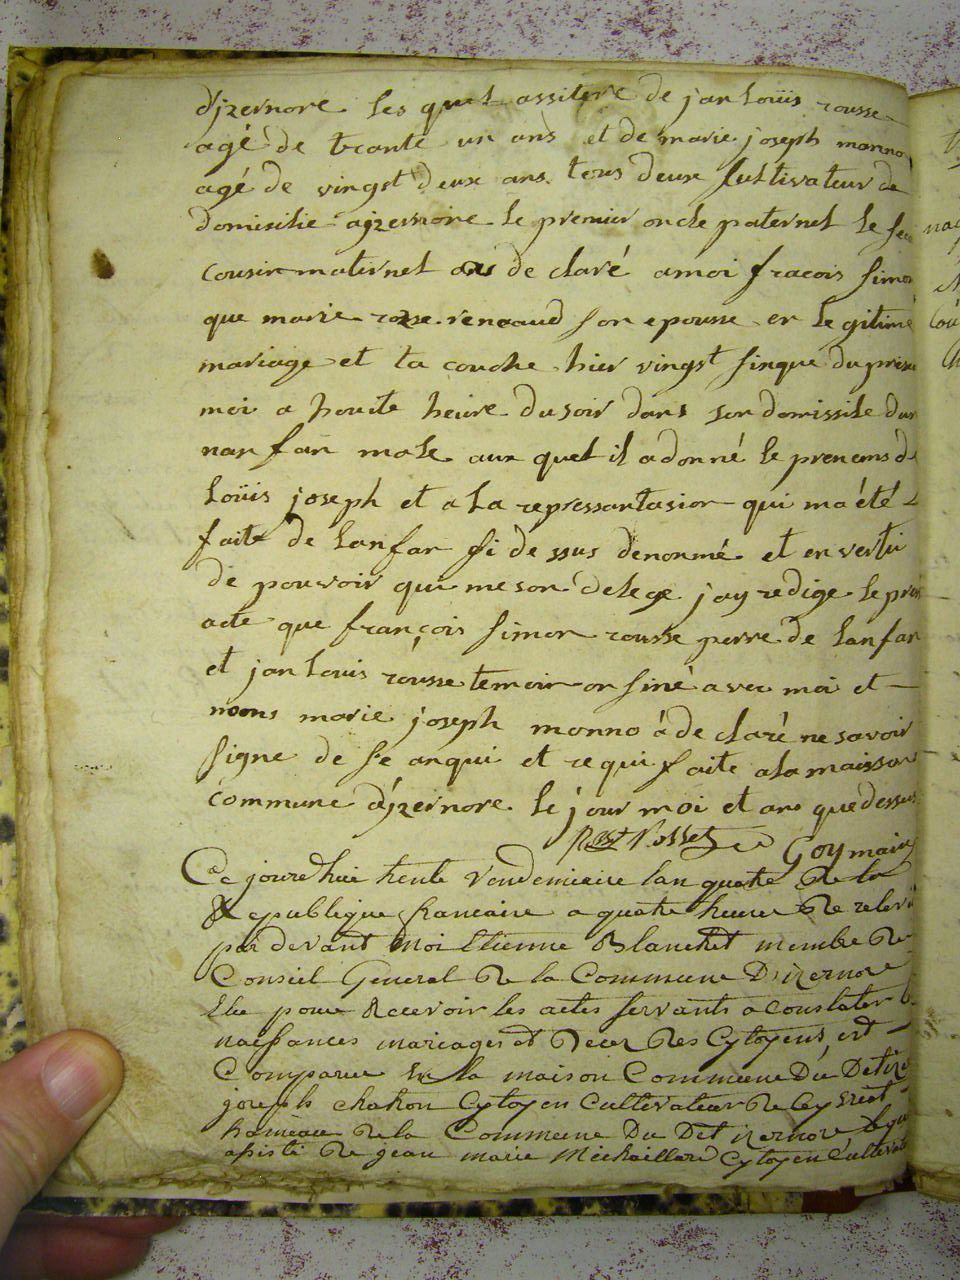 d'jzernore les quel assitere de jan Loüis rousse
agé de trante un ans et de marie joseph monno
agé de vingst deux ans tous deux Cultivateur de
domisilie ajzernore le premier oncle paternel le se
Cousin maternel de claré a moi fracois simon
que marie rosse renaaud son epousse en legitime
mariage et ta couche hier vingst sinque du presen
moi a houite heure du soir dans son domissile dun
nan fan male aux quel il a donné le prenoms de
Loüis joseph et a la repressantasion qui ma été
faite de Lanfan si dessus denommé et en vertu
de pouvoir qui me son delege j'ay redige le presen
acte que françois simon rousse perre de Lanfan
et jan Louis rousse temoin on siné avec moi et
noons marie joseph monno a de claré ne savoir
signe de se anqui et requi faite a la maisson
commune d'jzernore le jour moi et ans que dessus
Rosset Goymain
Ce jourdhui trente vendemiaire lan quatre de la
Republique francaise a quatre heures de relevé
par devant moi Etienne Blanchet membre de
Conseil General de la Commune D'izernore
Elu pour Recevoir les actes servants a constater les
naissances mariages et deces des Cytoyens est
Comparu En la maison Commune Du Det izer
joseph chanon Cytoyen Cultivateur de Ceyssiat
hameau de la Commune Du Det izernore le quel
asisté de jean marie Michaillard Cytoyen Cultivate